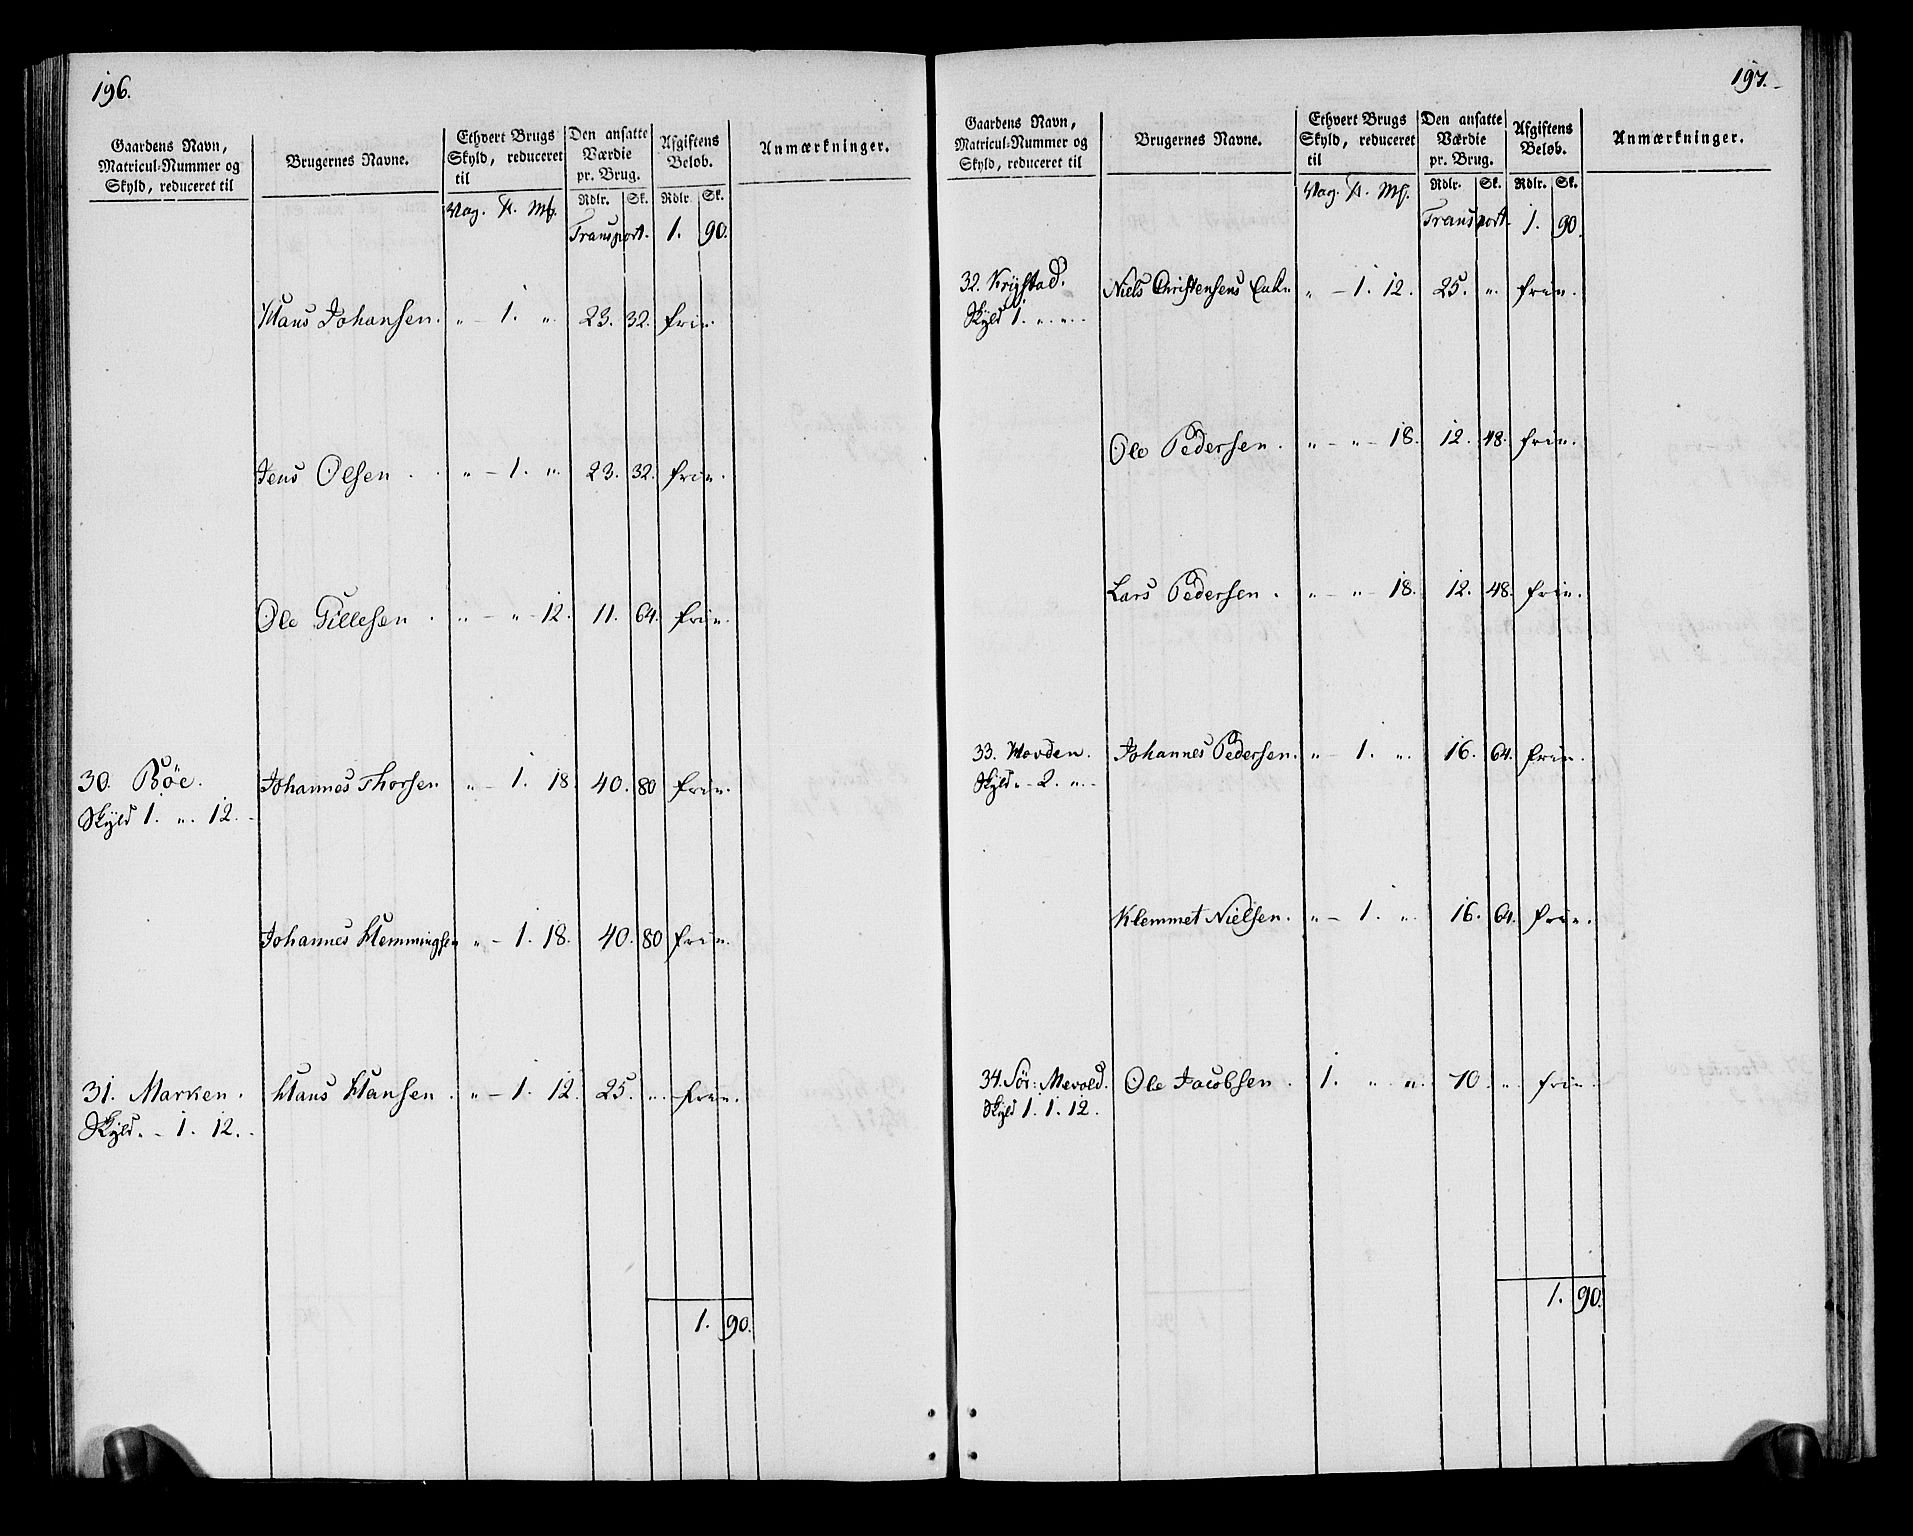 196.
Gaardens Navn, Matricul-Nummer og Skyld, reduceret til
Brugernes Navne.
Ethvert Brugs Skyld, reduceret til
Den ansatte Værdie pr. Brug.
Afgiftens Beløb.
Anmærkninger.
Vog. ℔. Mk. Rdlr. Sk. Rdlr. Sk.
Transport. 1. 90.
Hans Johansen. " - 1. " 23. 32. frie.
Jens Olsen . " - 1. " 23. 32. frie.
Ole Tillesen . " - " - 12. 11. 64. frie.
30. Böe. Johannes Thorsen " - 1. 18. 40. 80 frie.
Skyld 1. " . 12.
Johannes Hemmingsen " - 1. 18. 40. 80 frie.
31. Marken. Hans Hansen . " - 1. 12. 25. " frie.
Skyld. - 1. 12. -
1. 90.
197.
Gaardens Navn, Matricul-Nummer og Skyld, reduceret til
Brugernes Navne.
Ethvert Brugs Skyld, reduceret til
Den ansatte Værdie pr. Brug.
Afgiftens Beløb.
Anmærkninger.
Vog. ℔. Mk. Rdlr. Sk. Rdlr. Sk.
Transport. 1. 90.
32. Krystad. Niels Christensens Enke " - 1. 12. 25. " frie.
Skyld 1. " . " . -
Ole Pedersen . " - " - 18. 12. 48. frie.
Lars Pedersen . " - " - 18. 12. 48. frie.
33. Hovden. Johannes Pedersen. " - 1. " . 16. 64. frie.
Skyld " - 2. " . -
Klemmet Nielsen. " - 1. " . 16. 64. frie.
34. Sör: Mevold. Ole Jacobsen . 1. " " . 70. " frie.
Skyld 1. 1. 12.
1. 90.